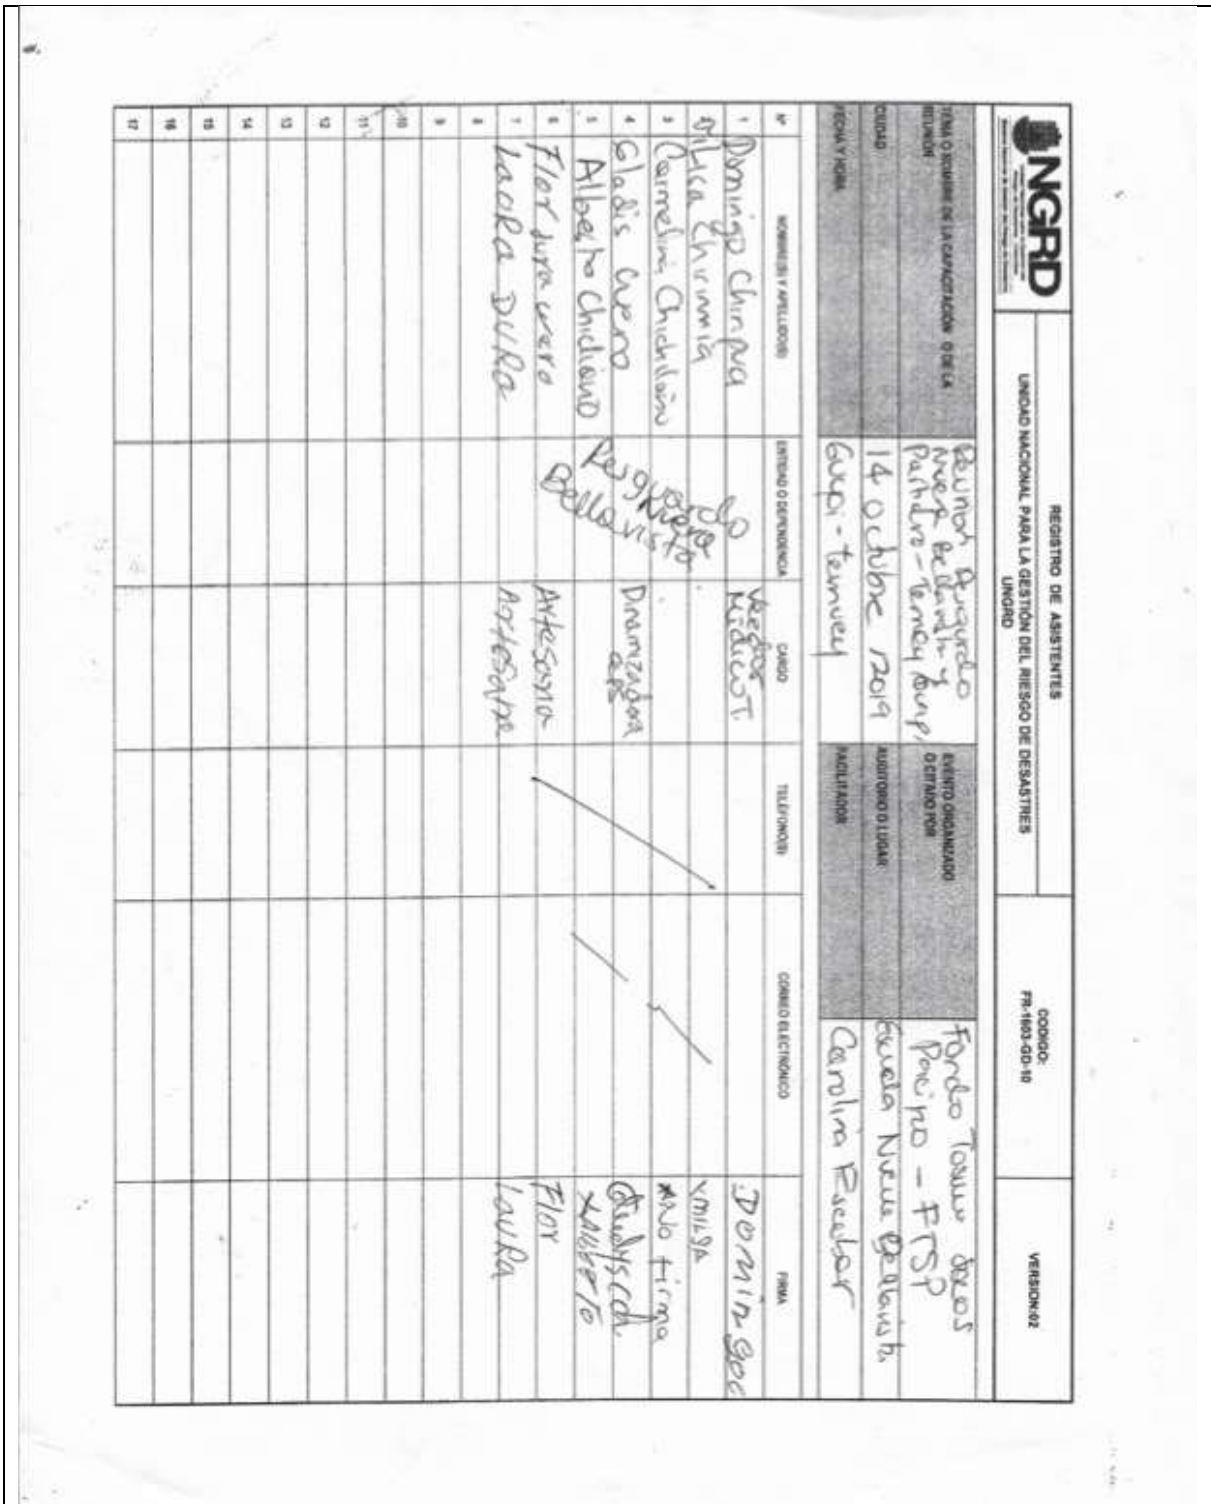 UNGRD
REGISTRO DE ASISTENTES
UNIDAD NACIONAL PARA LA GESTIÓN DEL RIESGO DE DESASTRES
UNGRD
CODIGO:
FR-1603-GD-10
VERSION:02
TEMA O NOMBRE DE LA CAPACITACIÓN O DE LA REUNIÓN
Reunion Resguardo
Nueva Bellavista y
EVENTO ORGANIZADO O CITADO POR
Fondo Todos Somos
Pacifico - FTSP
CIUDAD
14 octubre 2019
AUDITORIO O LUGAR
Escuela Nueva Bellavista
FECHA Y HORA
Guapi - Temuey
FACILITADOR
Carolina Escobar
Nº NOMBRE(S) Y APELLIDO(S) ENTIDAD O DEPENDENCIA CARGO TELÉFONO(S) CORREO ELECTRÓNICO FIRMA
1 Domingo Chiripua Veedor Médico T. Domingoc
2 Chirimia
3 Carmelina Chichiliano No firma
4 Gladis Cuero Dinamizadora
5 Alberto Chichiliano Alberto
6 Flor dura cuero Artesana Flor
7 Laura DURA Artesana Laura
Resguardo
Nueva
Bellavista
8
9
10
11
12
13
14
15
16
17